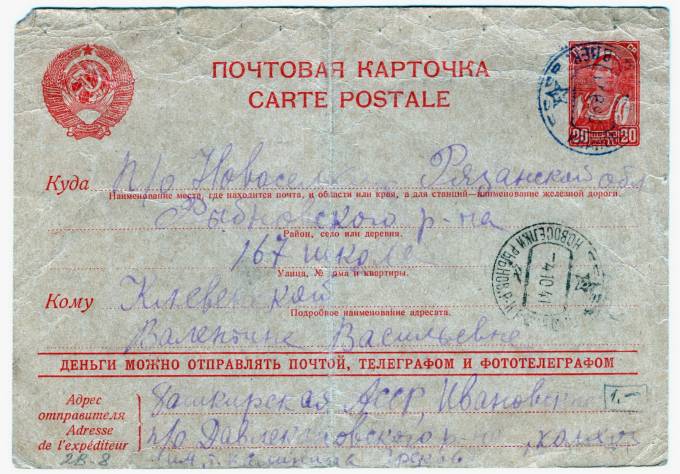 ПОЧТОВАЯ КАРТОЧКА
CARTE POSTALE
20 20
Куда п/о Новоселки Рязанской обл
Наименование места, где находится почта, и области или края, а для станций—наименование железной дороги.
Рыбновского р-на
Район, село или деревня.
167 школе
Улица, № дома и квартиры.
НОВОСЕЛКИ РЫБНОВ.
-4.10.41
Кому
Подробное наименование адресата.
Валентине Васильевне
ДЕНЬГИ МОЖНО ОТПРАВЛЯТЬ ПОЧТОЙ, ТЕЛЕГРАФОМ И ФОТОТЕЛЕГРАФОМ
Адрес отправителя
Adresse de l'expéditeur
Башкирская АССР, Ивановский
1.—
п/о Давлекановского р-на
28-8